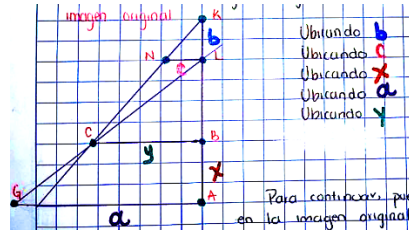 imagen original
K
b
N
L
c
C
B
y
x
G
A
a
Ubicando b
Ubicando c
Ubicando x
Ubicando a
Ubicando y
Para continuar,
en la imagen original